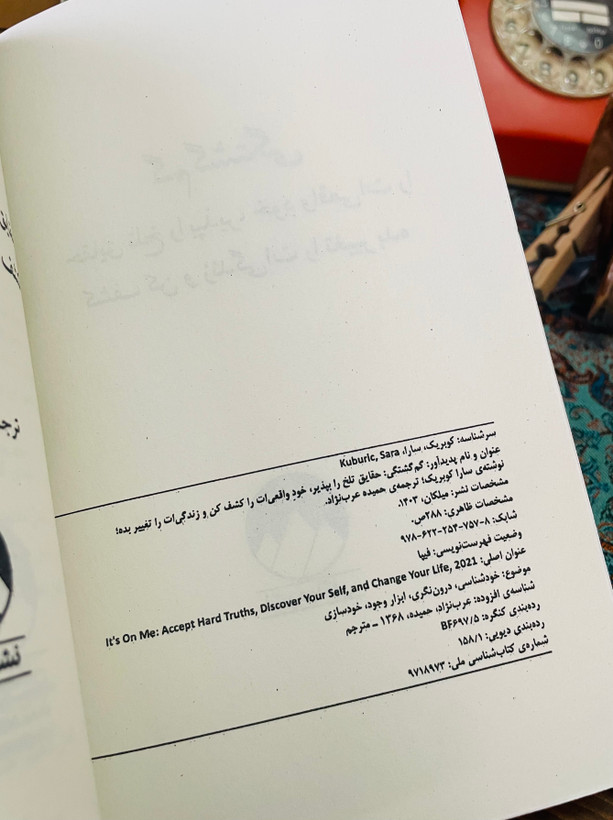 سرشناسه: کوبریک، سارا، Kuburic, Sara
عنوان و نام پدیدآور: گم‌گشتگی: حقایق تلخ را بپذیر، خودِ واقعی‌ات را کشف کن و زندگی‌ات را تغییر بده!
نوشته‌ی سارا کوبریک؛ ترجمه‌ی حمیده عرب‌نژاد.
مشخصات نشر: میلکان، ۱۴۰۳.
مشخصات ظاهری: ۲۸۸ص.
شابک: ۸-۷۵۷-۲۵۴-۶۲۲-۹۷۸
وضعیت فهرست‌نویسی: فیپا
عنوان اصلی: It's On Me: Accept Hard Truths, Discover Your Self, and Change Your Life, 2021
موضوع: خودشناسی، درون‌نگری، ابزار وجود، خودسازی
شناسه‌ی افزوده: عرب‌نژاد، حمیده، ۱۳۶۸ ـ مترجم
رده‌بندی کنگره: BF۶۹۷/۵
رده‌بندی دیویی: ۱۵۸/۱
شماره‌ی کتاب‌شناسی ملی: ۹۷۱۸۹۷۳